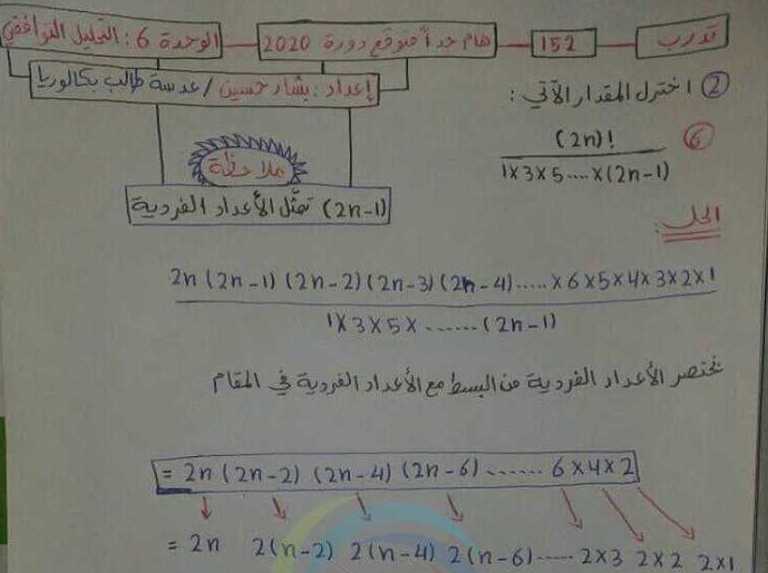 تدرب 152 هام جداً متوقع دورة 2020 الوحدة 6: التحليل التوافقي
إعداد: بشار حسين / عدسة طالب بكالوريا
② اختزل المقدار الآتي:
⑥ (2n)!
1×3×5....×(2n-1)
ملاحظة
(2n-1) تمثل الأعداد الفردية
الحل:
2n (2n-1) (2n-2)(2n-3)(2n-4).....×6×5×4×3×2×1
1×3×5×.......(2n-1)
نختصر الأعداد الفردية من البسط مع الأعداد الفردية في المقام
= 2n (2n-2) (2n-4) (2n-6)....... 6×4×2
= 2n 2(n-2) 2(n-4) 2(n-6)..... 2×3 2×2 2×1